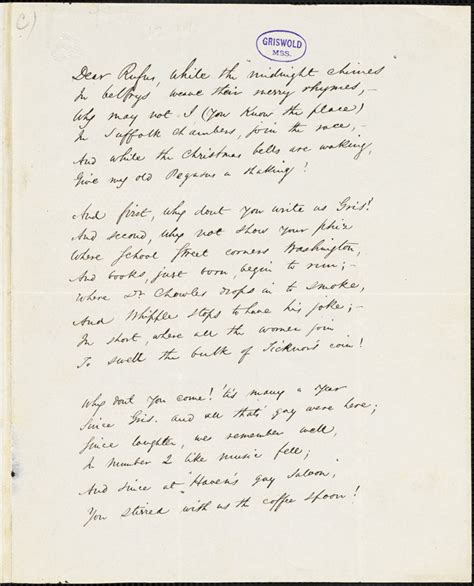 C)
GRISWOLD
MSS.
Dear Rufus, while the midnight chimes
In belfrys weave their merry rhymes,–
Why may not I (you know the place)
In Suffolk Chambers, join the race,–
And while the Christmas bells are waking,
Give my old Pegasus a shaking!
And first, why dont you write us Gris!
And second, why not show your phiz
Where School Street corners Washington,
And books, just born, begin to run;–
Where Dr Chowles drops in to smoke,
And Whipple stops to have his joke;–
In short, where all the women join
To swell the bulk of Ticknor's coin!
Why dont you come! 'tis many a year
Since Gris. and all that's gay were here;
Since laughter, we remember well,
In Number 2 like music fell;
And since at Haven's gay Saloon,
You stirred with us th coffee spoon!